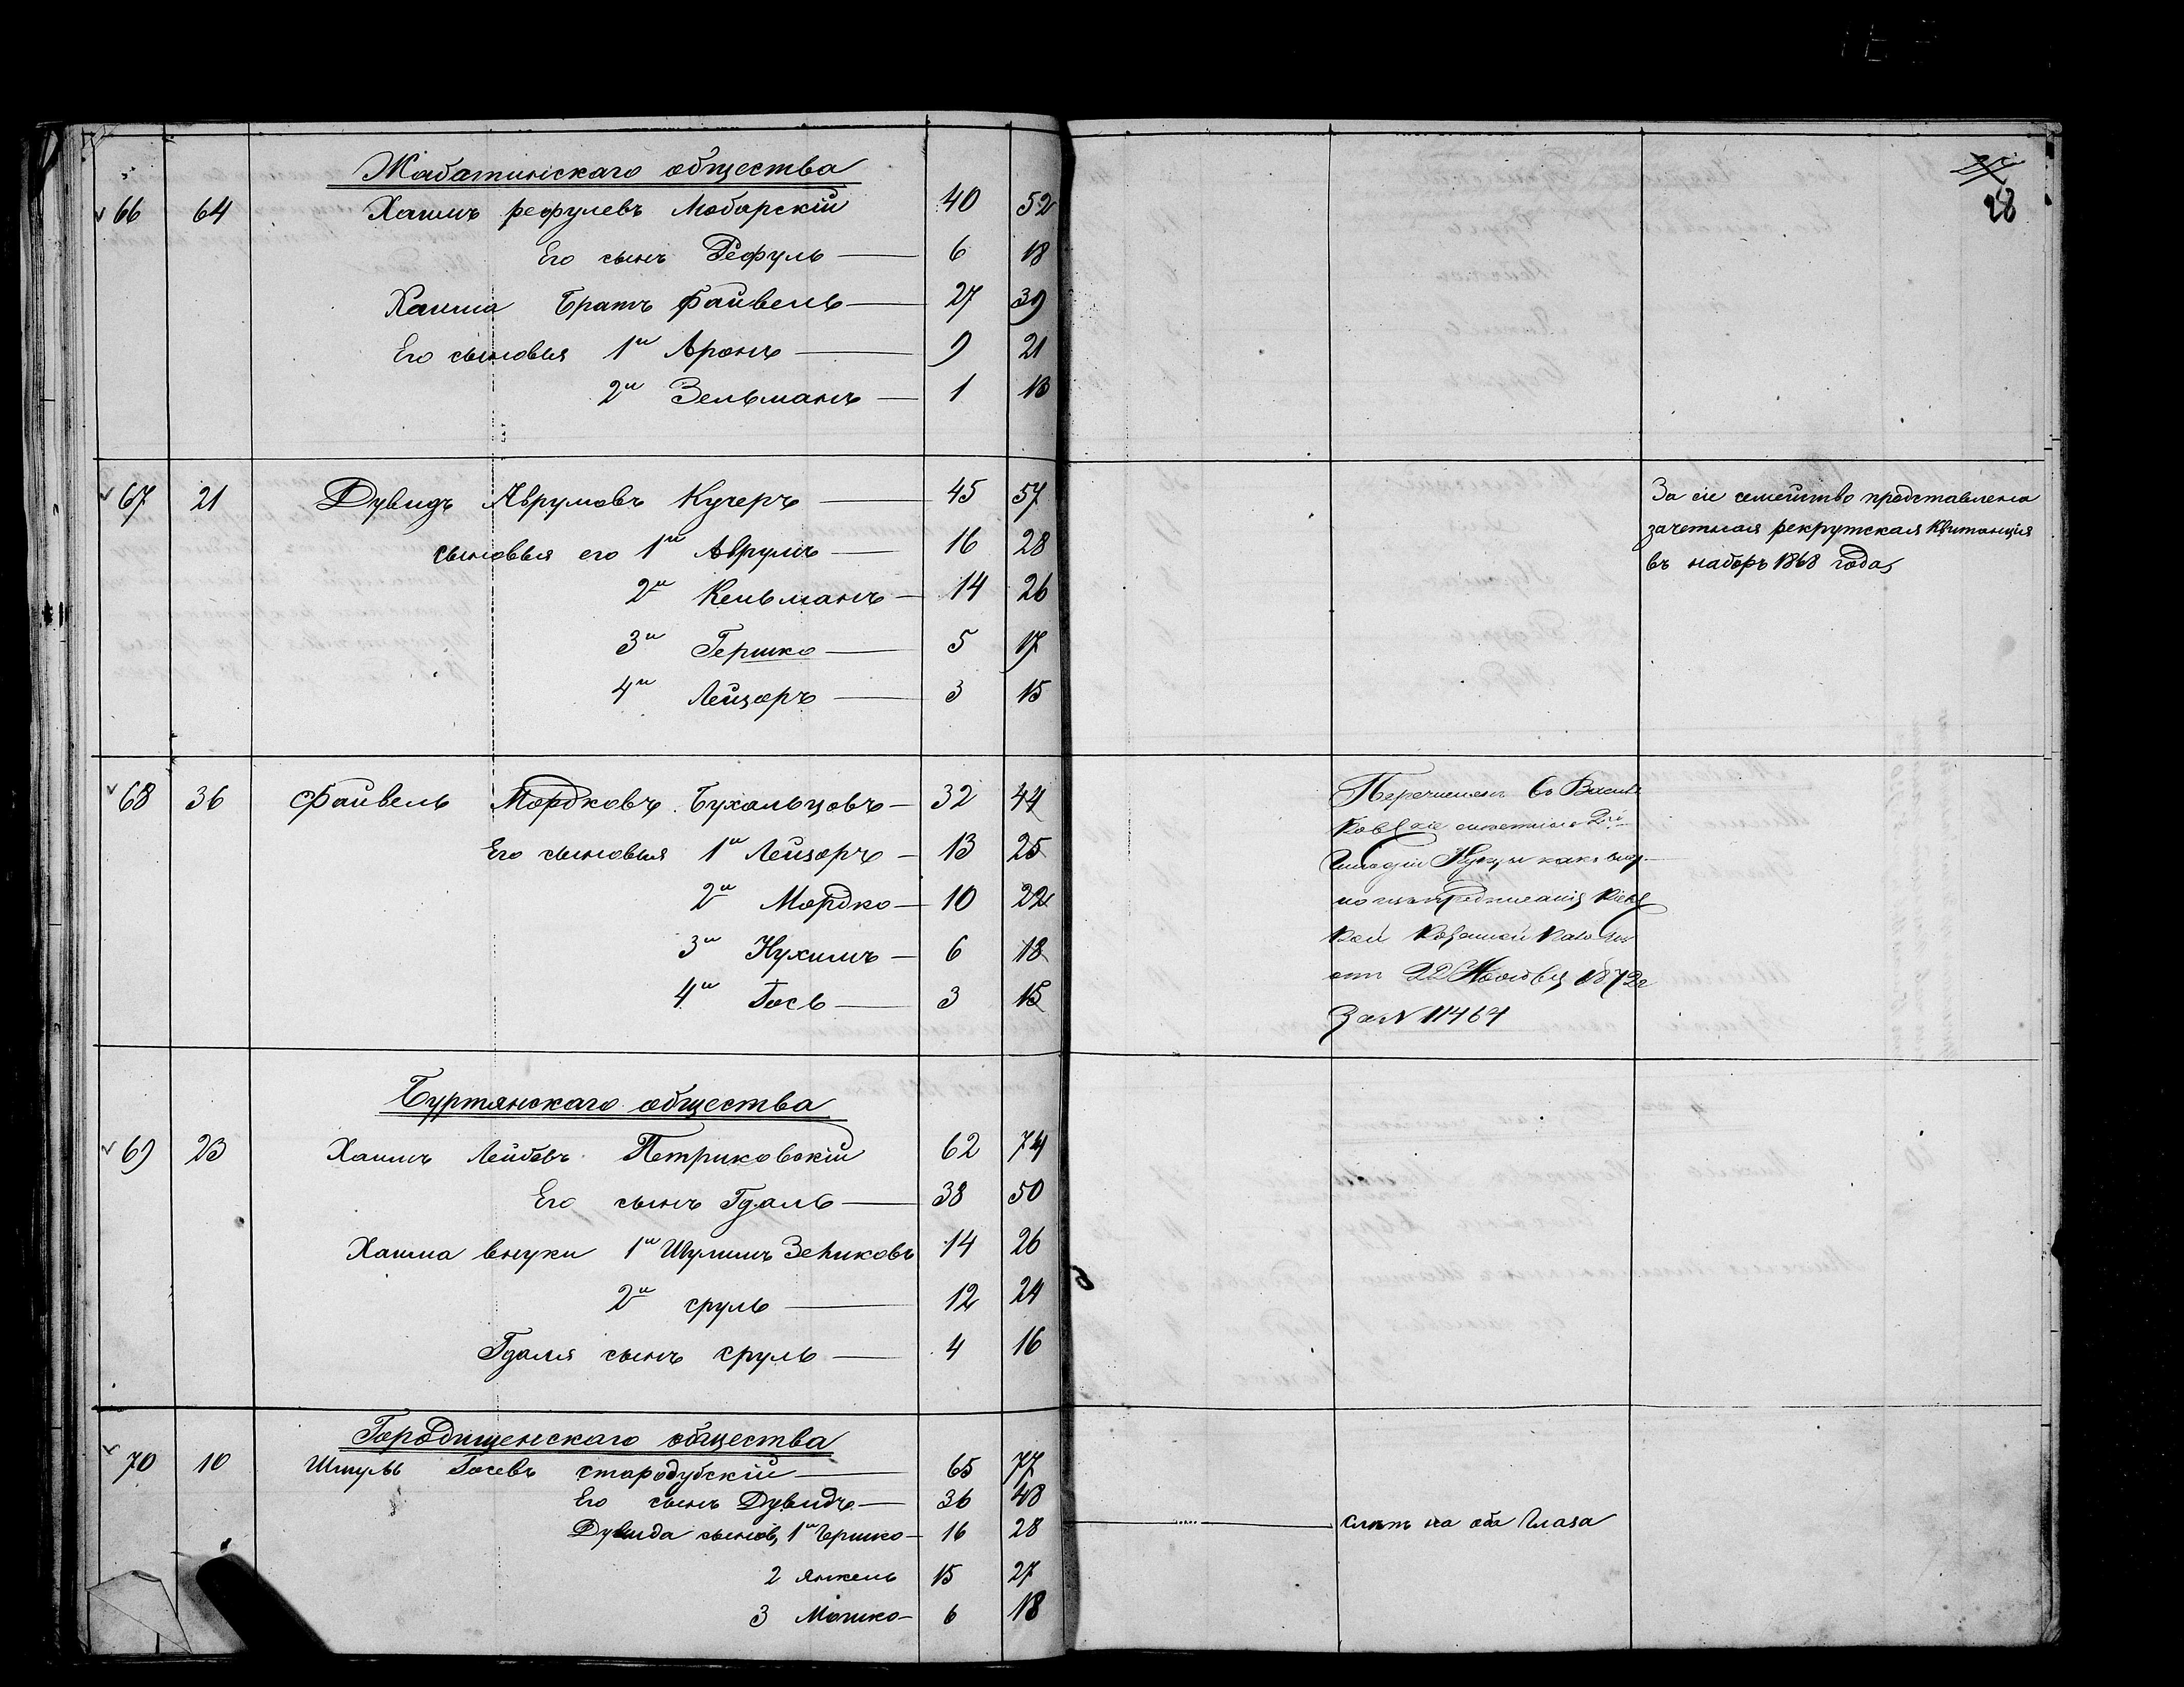 28
Жаботинскаго общества
66 64 Хаимъ рефулевъ Моборскій 40 52
Его сынъ Рефуль 6 18
Хаима Братъ Файвель 27 39
Его сыновья 1й Аронъ 9 21
2й Зельманъ 1 13
67 21 Дувидъ Аврумовъ Кучеръ 45 57
сыновья его 1й Аврумъ 16 28
2й Кельманъ 14 26
3й Гершко 5 17
4й Лейзоръ 3 15
За сіе семейство представлена
зачетная рекрутская Квитанція
въ наборъ 1868 года
68 36 Файвель Мордковъ Бухальцовъ 32 44
Его сыновья 1й Лейзоръ 13 25
2й Мордко 10 22
3й Нухимъ 6 18
4й Іось 3 15
Перечисленъ въ
2й
Гильдіи
Кіевс
кой Казенной Палаты
отъ 22 Ноября 1872г
За N 11464
Буртянскаго общества
69 23 Хаимъ Лейбовъ Петриковскій 62 74
Его сынъ Гдаль 38 50
Хаима внуки 1й Шулимъ Зейликовъ 14 26
2й сруль 12 24
Гдаля сынъ сруль 4 16
Городищенскаго общества
70 10 Шмуль Іосевъ стародубскій 65 77
Его сынъ Дувидъ 36 48
Дувида сынов, 1й Гершко 16 28 слепъ на оба Глаза
2 Янкель 15 27
3 Мошко 6 18